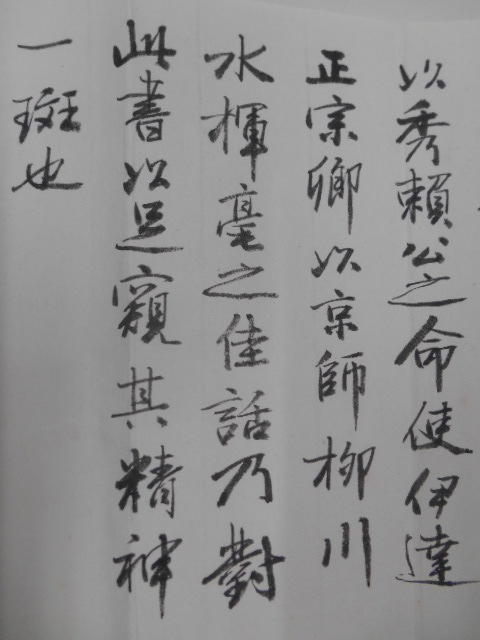 以秀頼公之命使伊達
正宗卿以京師柳川
水揮毫之佳話乃對
此書以足窺其精神
一斑也